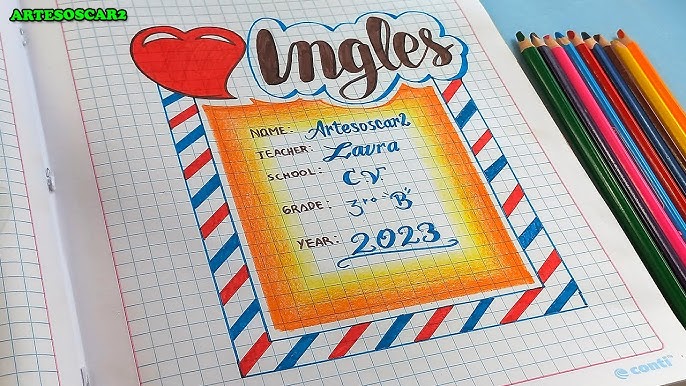 ARTESOSCAR2
Ingles
NAME: Artesoscar2
TEACHER: Laura
SCHOOL: C.V.
GRADE: 3ro "B"
YEAR: 2023
conti